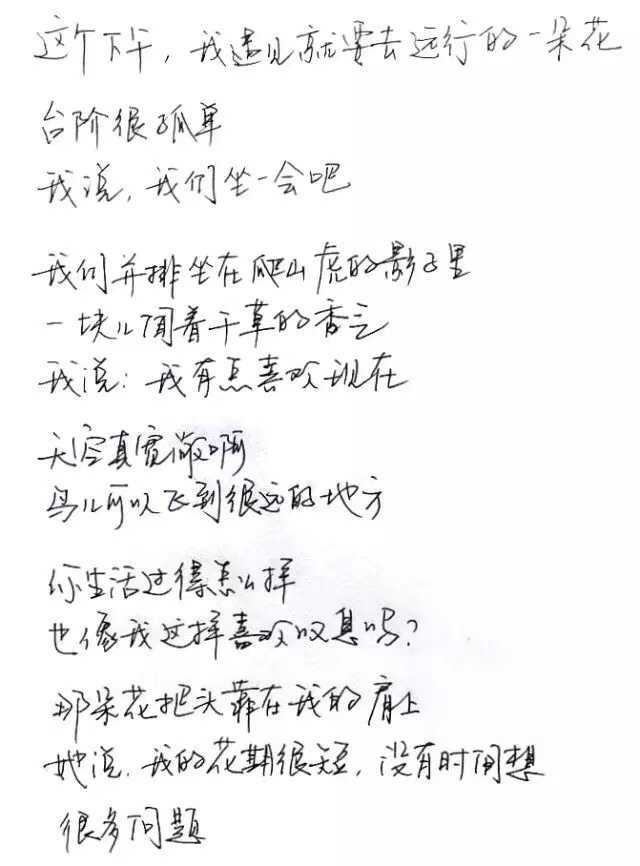 这个下午，我遇见就要去远行的一朵花
台阶很孤单
我说，我们坐一会吧
我们并排坐在爬山虎的影子里
一块儿闻着干草的香气
我说：我有点喜欢现在
天空真宽敞啊
鸟儿可以飞到很远的地方
你生活过得怎么样
也像我这样喜欢叹息吗？
那朵花把头靠在我的肩上
她说，我的花期很短，没有时间想
很多问题